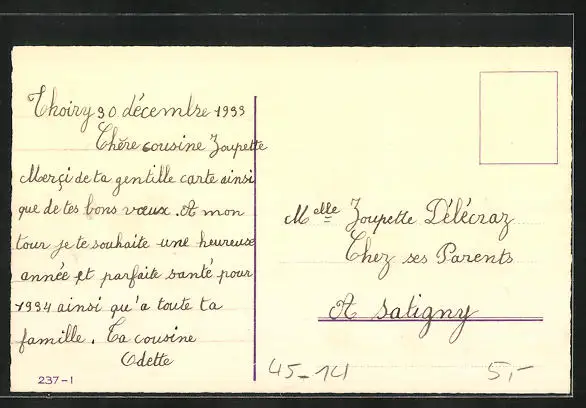 Thoiry 30 décembre 1933
Chère cousine Zoupette
Merçi de ta gentille carte ainsi
que de tes bons vœux. A mon
tour je te souhaite une heureuse
année et parfaite santé pour
1934 ainsi qu'a toute ta
famille. Ta cousine
Odette
237-1
Melle Zoupette Délécraz
Chez ses Parents
A Satigny
45-14
5,-